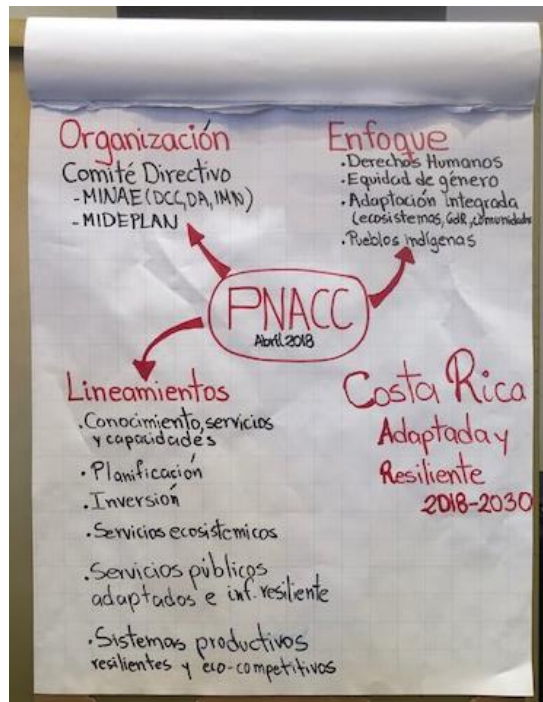 Organización
Comité Directivo
- MINAE (DCC, DA, IMN)
- MIDEPLAN
Enfoque
• Derechos Humanos
• Equidad de género
• Adaptación integrada
(ecosistemas, GdR, comunidades
• Pueblos indígenas
PNACC
Abril 2018
Lineamientos
• Conocimiento, servicios
y capacidades
• Planificación
• Inversión
• Servicios ecosistémicos
• Servicios públicos
adaptados e inf. resiliente
• Sistemas productivos
resilientes y eco-competitivos
Costa Rica
Adaptada y
Resiliente
2018-2030